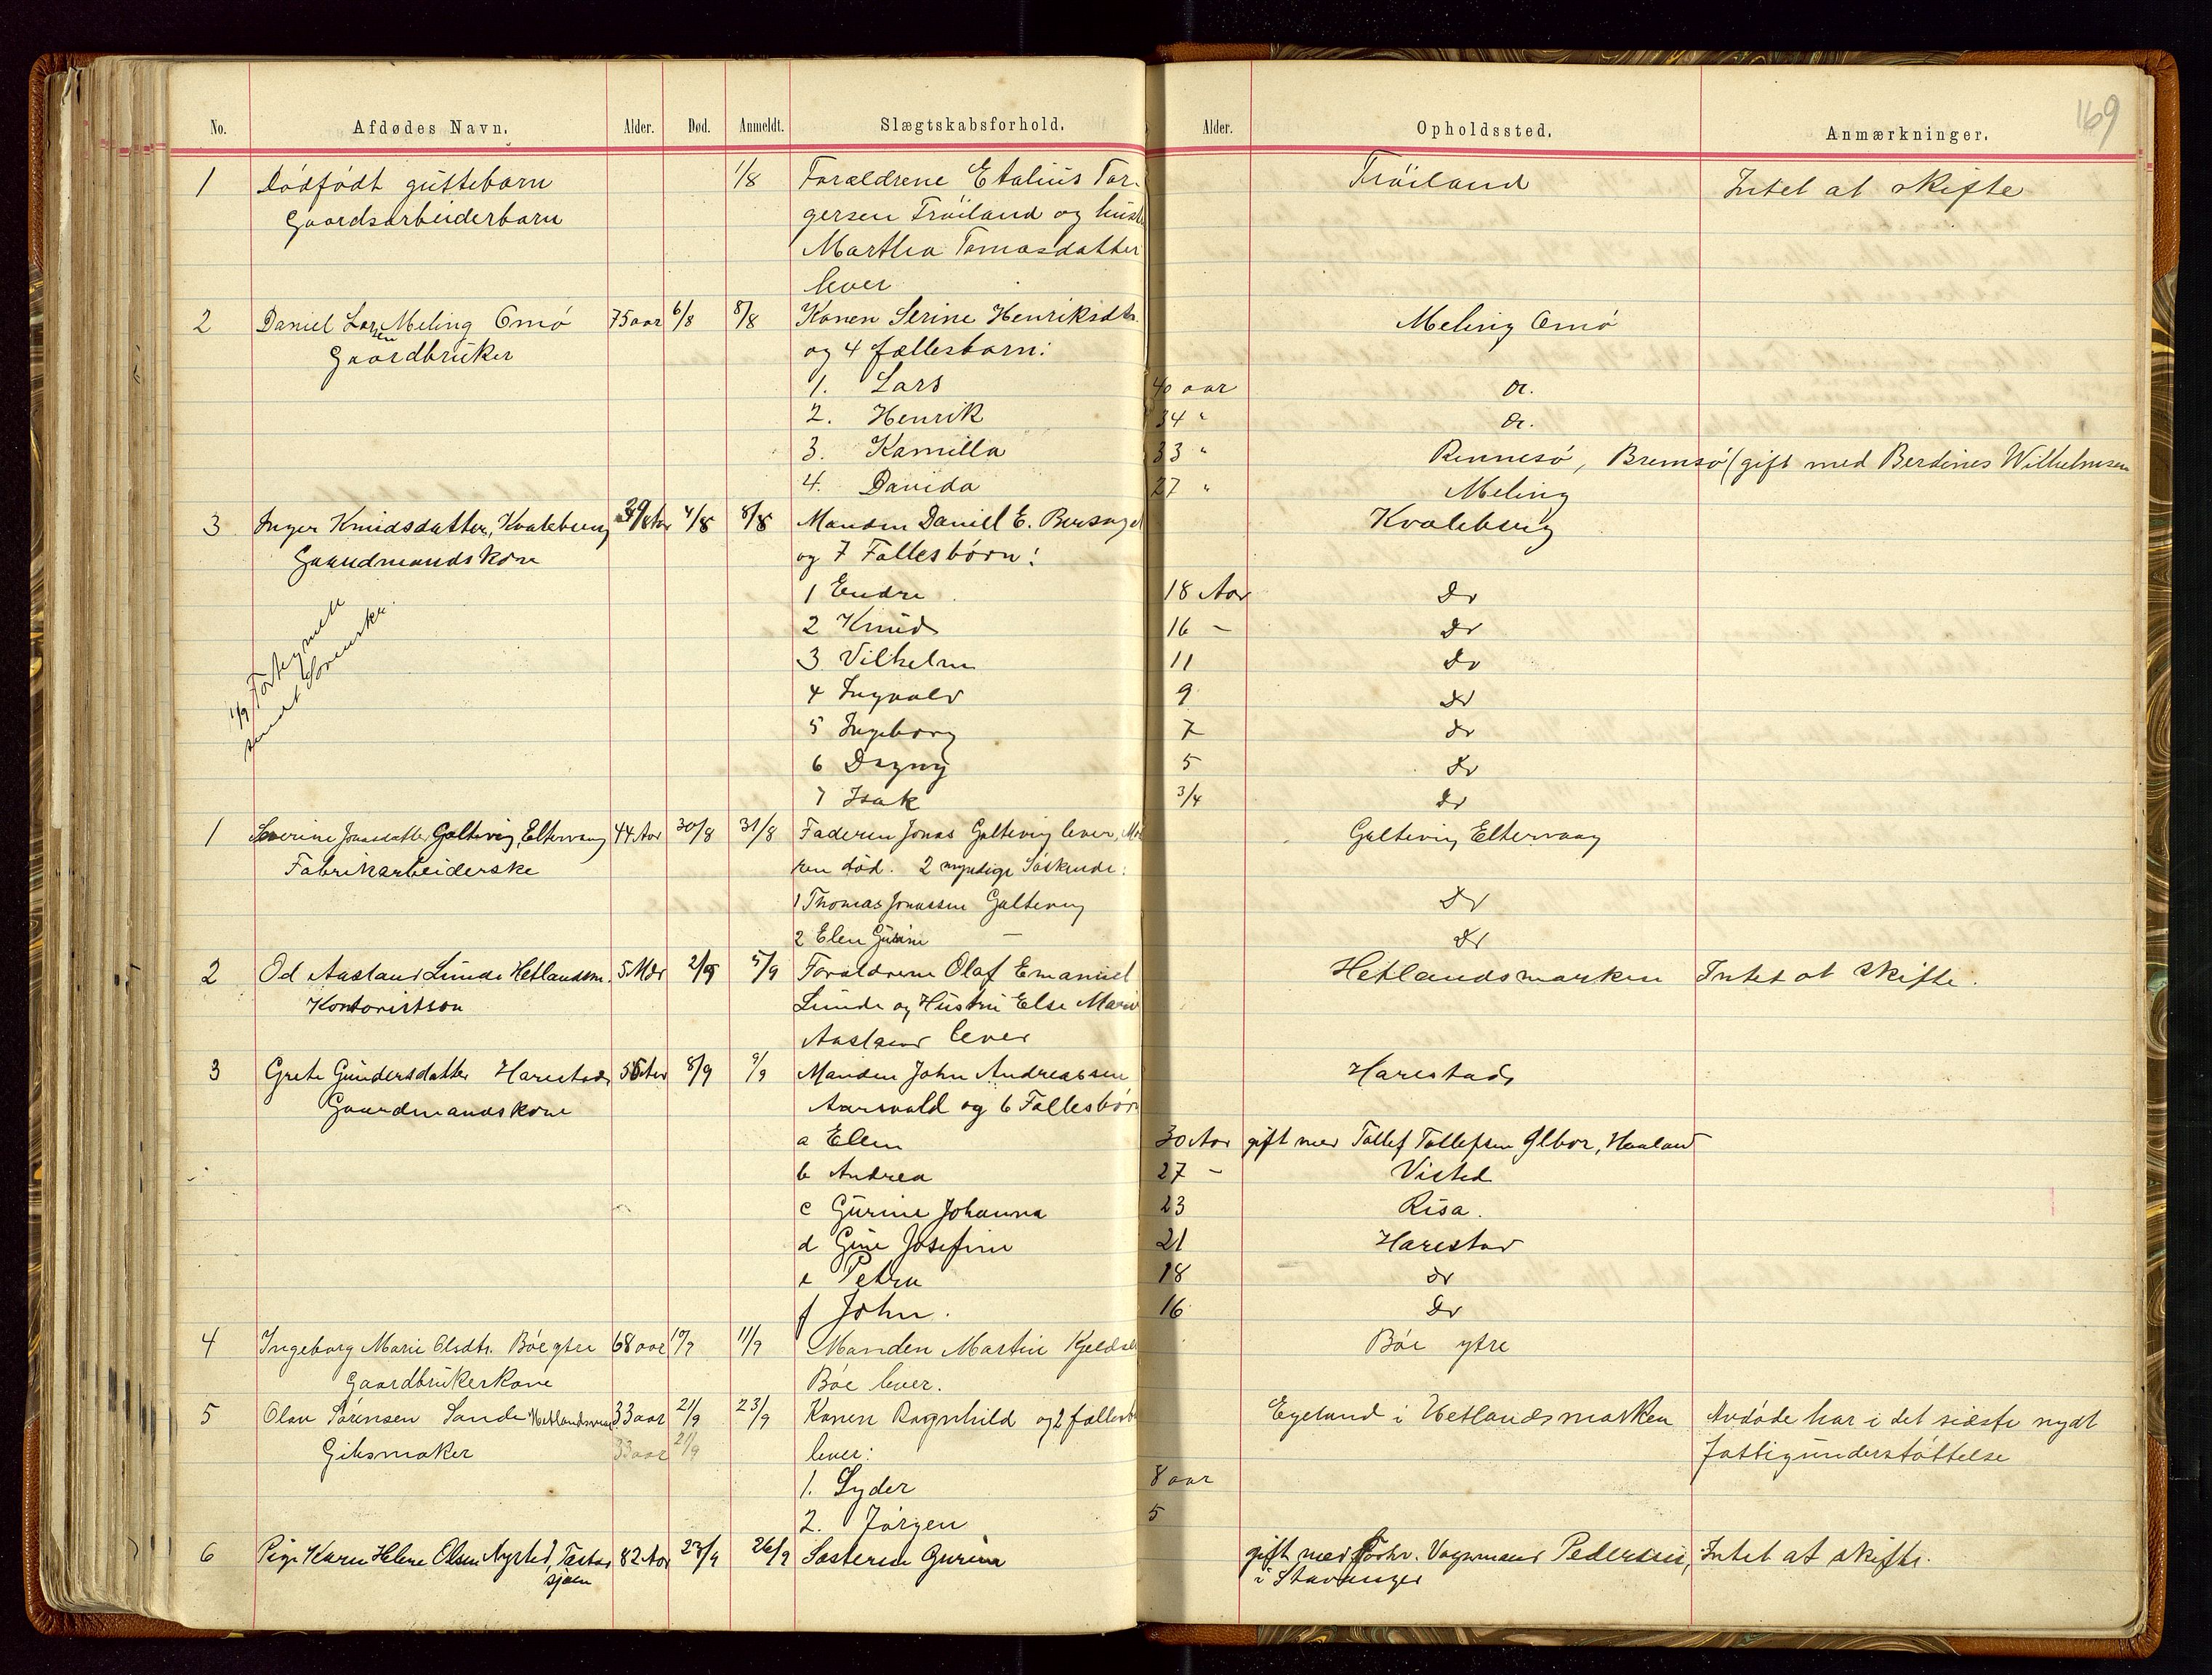 169
No. Afdødes Navn. Alder. Død. Anmeldt. Slægtskabsforhold. Alder. Opholdssted. Anmærkninger.
1 Dödfödt guttebarn 1/8 Forældrene Etalius Tor- Tröiland Intet at skifte
Gaardsarbeiderbarn gersen Tröiland og hustr
Marthea Tomasdatter
lever
2 Daniel Larsen Meling Omö 75 aar 6/8 8/8 Konen Serine Henriksdtr. Meling Omö
Gaardbruker og 4 fællesbarn:
1. Lars 40 aar do.
2. Henrik 34 " do.
3. Kamilla 33 " Rennesö, Bremsö (gift med Berdines Wilhelmsen
4. Danida 27 " Meling
3 Inger Knudsdatter, Kvaleberg 39 Aar 4/8 8/8 Manden Daniel E. Bersagel Kvaleberg
Gaardmandskone og 7 Fællesbörn:
1 Endre 18 Aar do
2 Knud 16 - do
3 Vilhelm 11 do
4 Ingvald 9 do
5 Ingeborg 7 do
6 Dagny 5 do
7 Isak 3/4 do
1 Severine Jonasdatter Galtevig, Eltervaag 44 Aar 30/8 31/8 Faderen Jonas Galtevig lever, Mo Galtevig Eltervaag
Fabrikarbeiderske ren död. 2 myndige Söskende:
1 Thomas Jonassen Galtevig do
2 Elen Gurine — do
2 Od Aasland Lunde Hetlandsm. 5 Mdr 2/9 5/9 Forældrene Olaf Emanuel Hetlandsmarken Intet at skifte.
Kontoristsøn Lunde og Hustru Else Marie
Aasland lever
3 Grete Gundersdatter Harestad 55 Aar 8/9 9/9 Manden John Andreassen Harestad
Gaardmandskone Aarsvold og 6 Fællesbör
a Elen 30 Aar gift med Tollef Tollefsen Haaland
b Andrea 27 - Visted
c Gurine Johanna 23 Risa.
d Gine Josefine 21 Harestad
e Petra 18 do
f John. 16 do
4 Ingeborg Marie Olsdtr. Böe ytre 68 aar 10/9 11/9 Manden Martin Kjelds Böe ytre
Gaardbrukerkone Böe lever.
5 Olav Sörensen Sande Hetlandsmar 33 aar 21/9 23/9 Konen Ragnhild og 2 fællesb Egeland i Hetlandsmarken Avdöde har i det sidste nydt
Gibsmaker 33 aar 21/9 lever: fattigunderstöttelse
1. Syder 8 aar
2. Jörgen 5
6 Pige Karen Helene Olsen Nysted, Tasta 82 Aar 23/9 26/9 Søsteren Gurine gift med Vognmand Pedersen, Intet at skifte.
sjöen i Stavanger